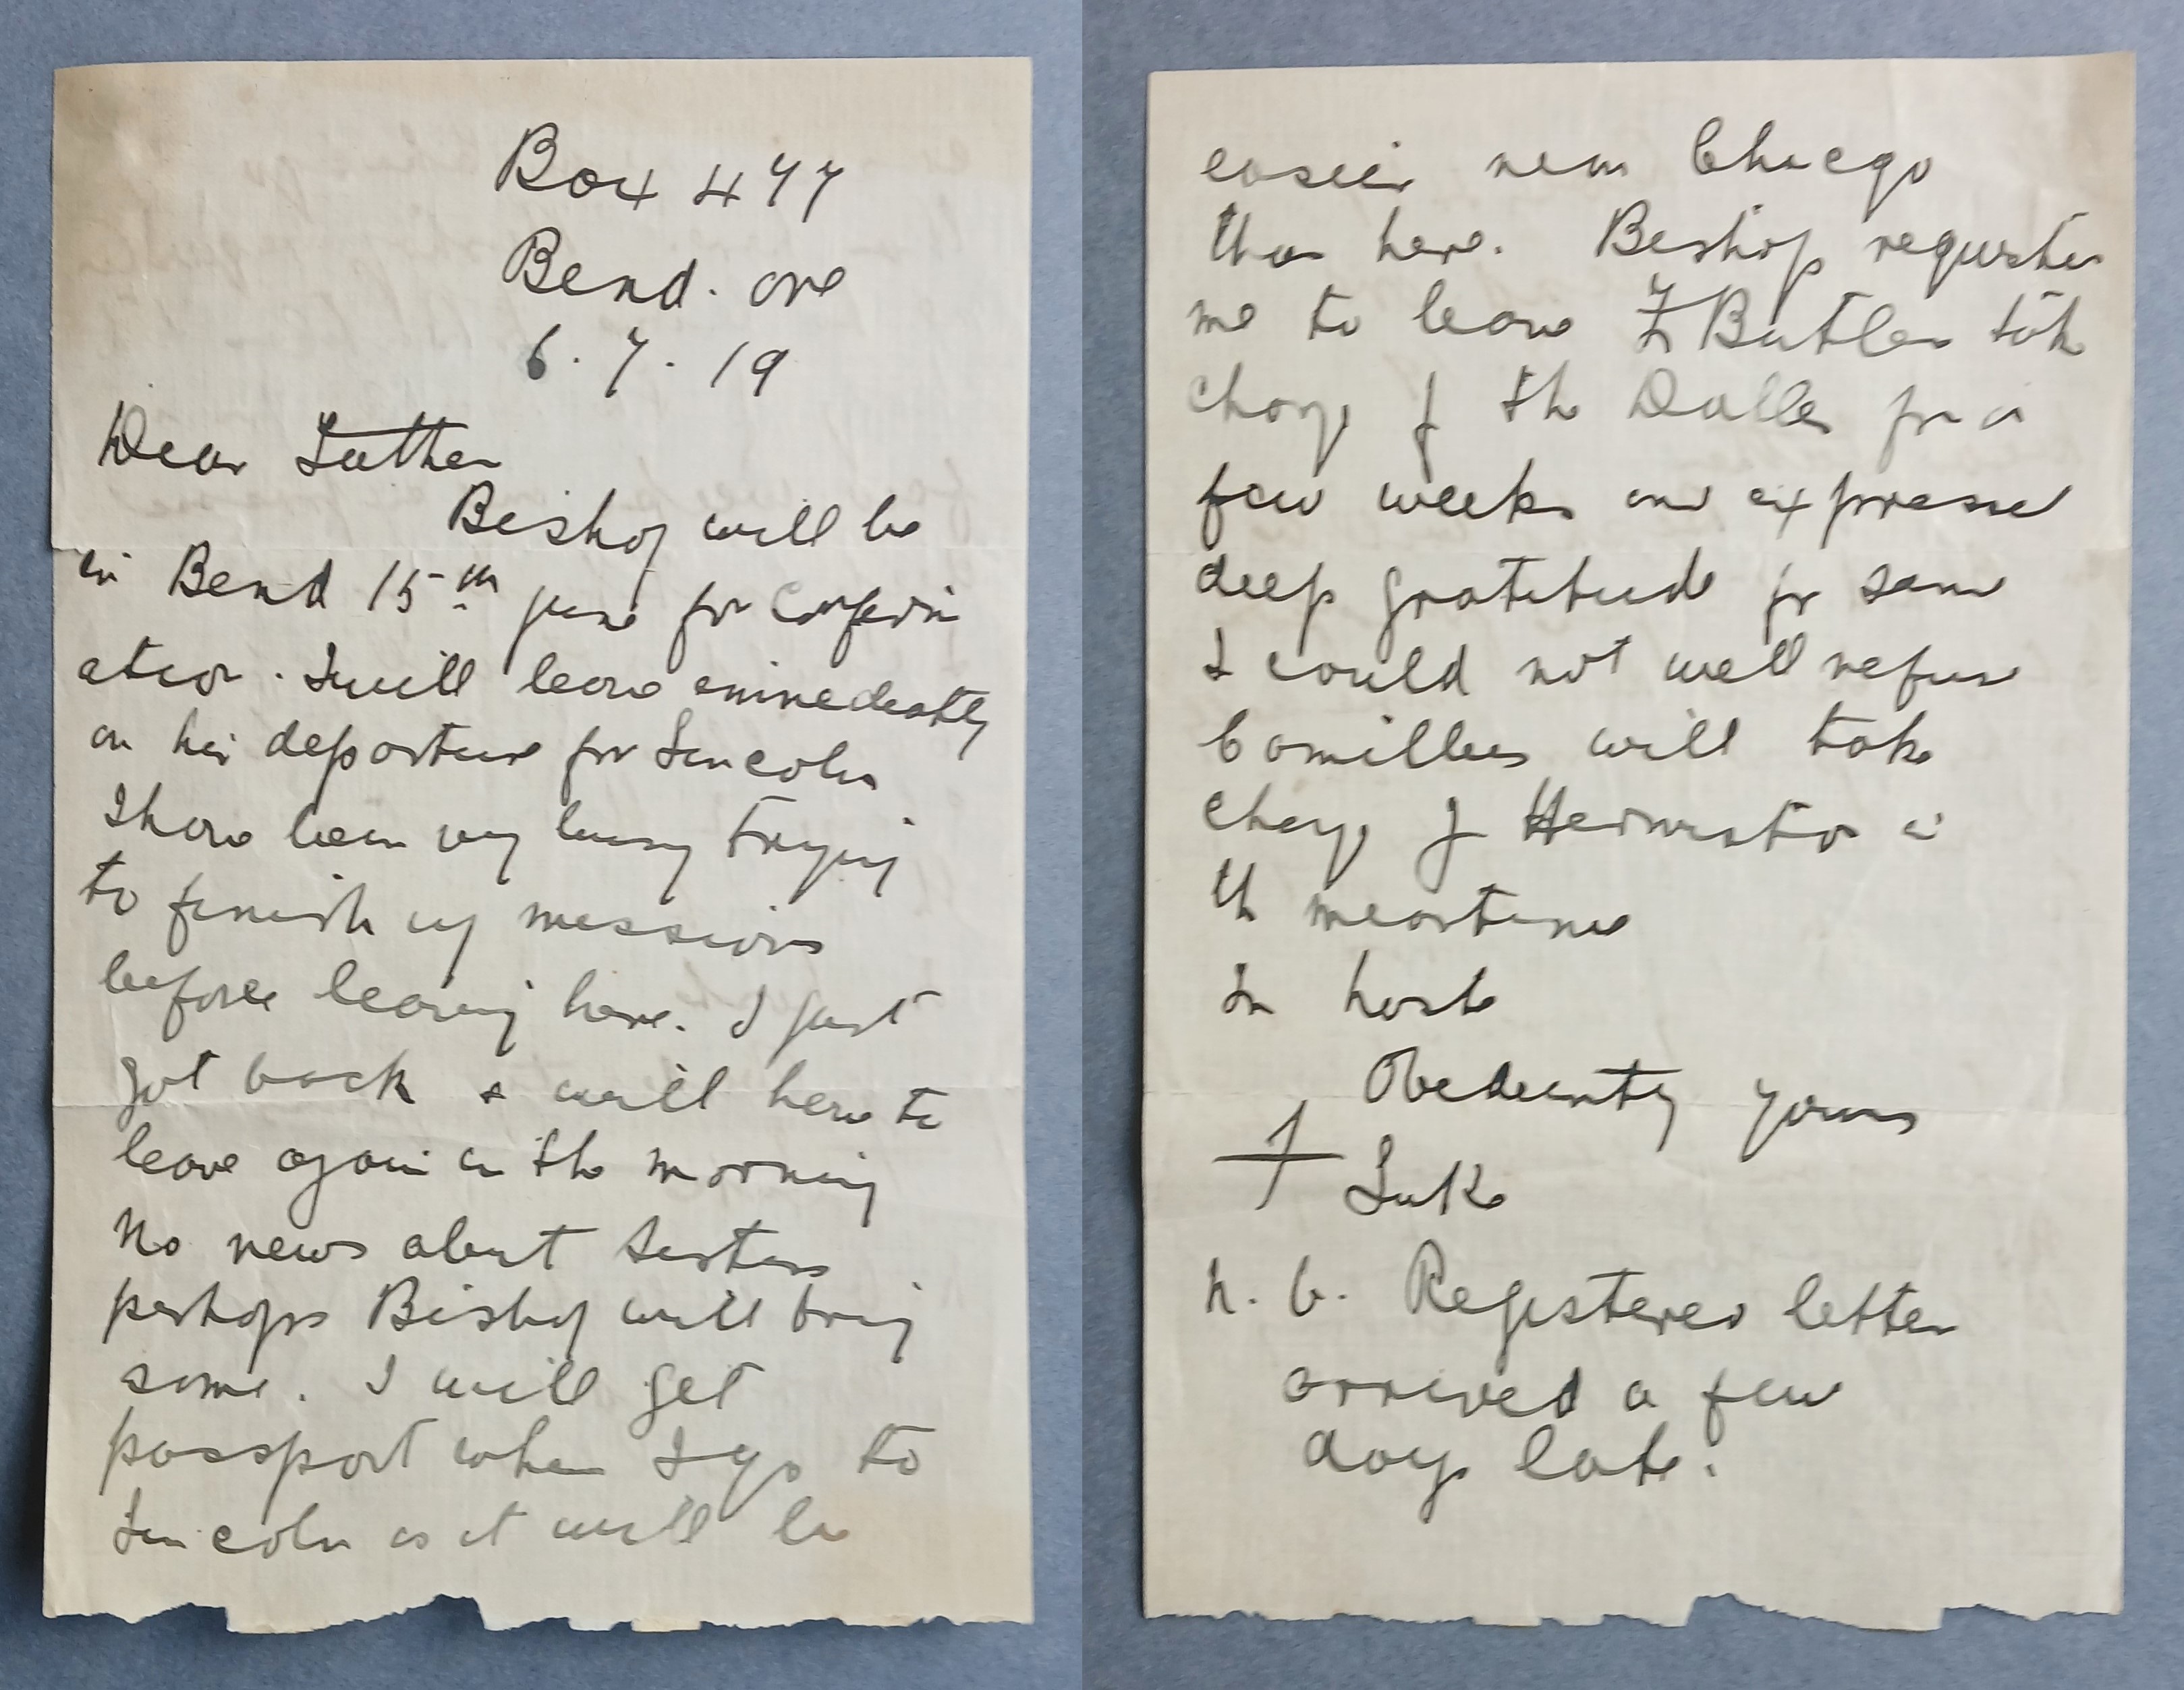 Box 477
Bend. Ore
6. 7. 19
Dear Father
Bishop will be
in Bend 15th June for Confirm
ation. I will leave immediately
on his departure for Lincoln
I have been very busy trying
to finish up missions
before leaving here. I just
got back & will have to
leave again in the morning
No news about Sisters
perhaps Bishop will bring
some. I will get
passport when I go to
Lincoln as it will be
easier near Chicago
than here. Bishop requested
me to leave Fr Butler take
charge of the Dalles for a
few weeks and expressed
deep gratitude for same
I could not well refuse
Camillus will take
charge of Hermiston in
the meantime
In haste
Obediently yours
Luke
N. B. Registered letter
arrived a few
days late.